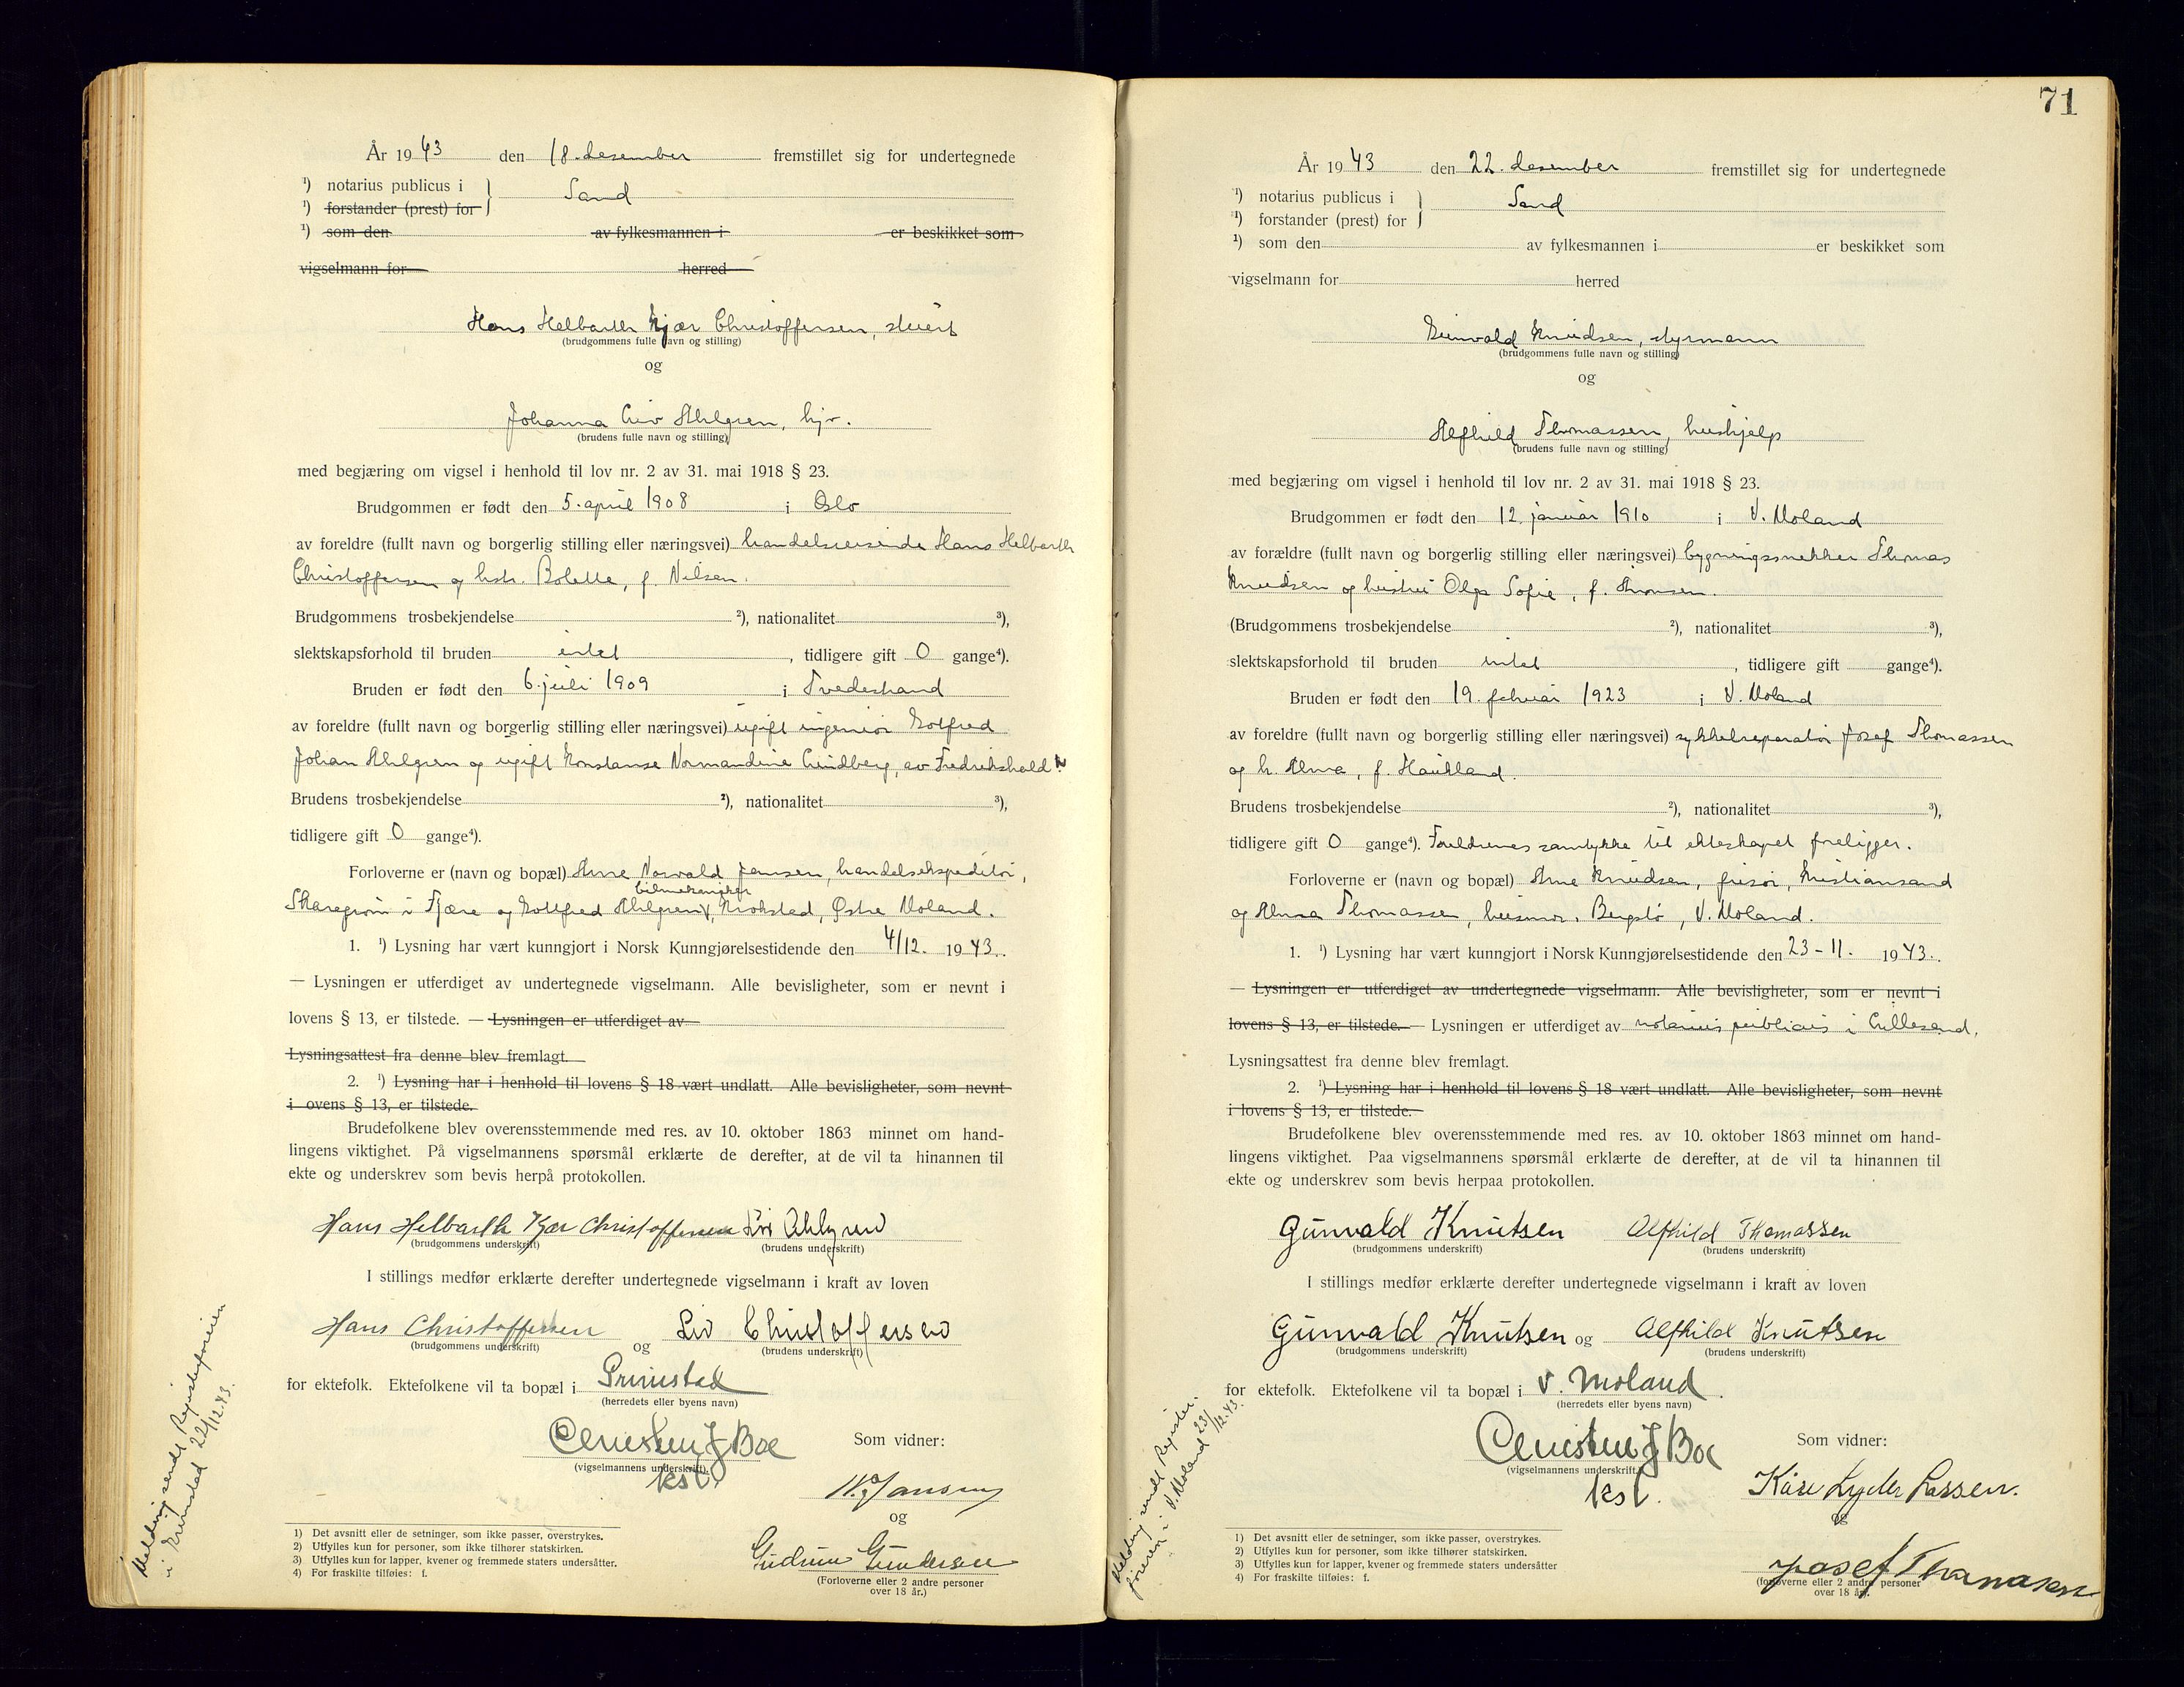 År 1943 den 18. desember fremstillet sig for undertegnede
¹) notarius publicus i } Sand
¹) forstander (prest) for
¹) som den av fylkesmannen i er beskikket som
vigselmann for herred
Hans Helbarth Kjær Christoffersen, stuert
(brudgommens fulle navn og stilling)
og
Johanna Liv Ahlgren, hjv.
(brudens fulle navn og stilling)
med begjæring om vigsel i henhold til lov nr. 2 av 31. mai 1918 § 23.
Brudgommen er født den 5. april 1908 i Oslo
av foreldre (fullt navn og borgerlig stilling eller næringsvei) handelsreisende Hans Helbarth
Christoffersen og hstr. Bolette, f. Nilsen.
Brudgommens trosbekjendelse ²), nationalitet ³),
slektskapsforhold til bruden intet, tidligere gift 0 gange⁴).
Bruden er født den 6. juli 1909 i Tvedestrand
av foreldre (fullt navn og borgerlig stilling eller næringsvei) ugift ingeniør Gotfred
Johan Ahlgren og ugift Konstanse Normandine Lindberg, av Fredrikshald.
Brudens trosbekjendelse ²), nationalitet ³),
tidligere gift 0 gange⁴).
Forloverne er (navn og bopæl) Arne Norvald Jensen, handelsekspeditør,
bilmekaniker
Skaregrøm i Fjære og Gottfred Ahlgren, Krokstad, Østre Moland.
1. ¹) Lysning har vært kunngjort i Norsk Kunngjørelsestidende den 4/12. 1943.
— Lysningen er utferdiget av undertegnede vigselmann. Alle bevisligheter, som er nevnt i
lovens § 13, er tilstede. — Lysningen er utferdiget av
Lysningsattest fra denne blev fremlagt.
2. ¹) Lysning har i henhold til lovens § 18 vært undlatt. Alle bevisligheter, som nevnt
i ovens § 13, er tilstede.
Brudefolkene blev overensstemmende med res. av 10. oktober 1863 minnet om hand-
lingens viktighet. På vigselmannens spørsmål erklærte de derefter, at de vil ta hinannen til
ekte og underskrev som bevis herpå protokollen.
Hans Helbarth Kjær Christoffersen Liv Ahlgren
(brudgommens underskrift) (brudens underskrift)
I stillings medfør erklærte derefter undertegnede vigselmann i kraft av loven
Hans Christoffersen og Liv Christoffersen
(brudgommens underskrift) (brudens underskrift)
for ektefolk. Ektefolkene vil ta bopæl i Grimstad
(herredets eller byens navn)
Christen J Boe
(vigselmannens underskrift)
kst.
Som vidner:
Jansen
og
Gudrun Gundersen
(Forloverne eller 2 andre personer
over 18 år.)
1) Det avsnitt eller de setninger, som ikke passer, overstrykes.
2) Utfylles kun for personer, som ikke tilhører statskirken.
3) Utfylles kun for lapper, kvener og fremmede staters undersåtter.
4) For fraskilte tilføies: f.
Melding sendt Registerføreren
i Grimstad 22/12.43.
71
År 1943 den 22. desember fremstillet sig for undertegnede
¹) notarius publicus i } Sand
¹) forstander (prest) for
¹) som den av fylkesmannen i er beskikket som
vigselmann for herred
Gunvald Knudsen, styrmann
(brudgommens fulle navn og stilling)
og
Alfhild Thomassen, hushjelp
(brudens fulle navn og stilling)
med begjæring om vigsel i henhold til lov nr. 2 av 31. mai 1918 § 23.
Brudgommen er født den 12. januar 1910 i V. Moland
av forældre (fullt navn og borgerlig stilling eller næringsvei) bygningssnekker Thomas
Knudsen og hustru Olga Sofie, f. Aronsen.
(Brudgommens trosbekjendelse ²), nationalitet ³),
slektskapsforhold til bruden intet, tidligere gift gange⁴).
Bruden er født den 19. februar 1923 i V. Moland
av foreldre (fullt navn og borgerlig stilling eller næringsvei) sykkelreparatør Josef Thomassen
og h. Alma, f. Haukland.
Brudens trosbekjendelse ²), nationalitet ³),
tidligere gift 0 gange⁴). Foreldrenes samtykke til ekteskapet foreligger.
Forloverne er (navn og bopæl) Arne Knudsen, frisør, Kristiansand
og Alma Thomassen, husmor, Bergstø, V. Moland.
1. ¹) Lysning har vært kunngjort i Norsk Kunngjørelsestidende den 23-11. 1943.
— Lysningen er utferdiget av undertegnede vigselmann. Alle bevisligheter, som er nevnt i
lovens § 13, er tilstede. — Lysningen er utferdiget av notarius publicus i Lillesand.
Lysningsattest fra denne blev fremlagt.
2. ¹) Lysning har i henhold til lovens § 18 vært undlatt. Alle bevisligheter, som nevnt
i lovens § 13, er tilstede.
Brudefolkene blev overensstemmende med res. av 10. oktober 1863 minnet om hand-
lingens viktighet. Paa vigselmannens spørsmål erklærte de derefter, at de vil ta hinannen til
ekte og underskrev som bevis herpaa protokollen.
Gunvald Knutsen Alfhild Thomassen
(brudgommens underskrift) (brudens underskrift)
I stillings medfør erklærte derefter undertegnede vigselmann i kraft av loven
Gunvald Knutsen og Alfhild Knutsen
(brudgommens underskrift) (brudens underskrift)
for ektefolk. Ektefolkene vil ta bopæl i V. Moland.
(herredets eller byens navn)
Christen J Boe
(vigselmannens underskrift)
kst.
Som vidner:
Kåre Lyder Lassen.
og
Josef Thomassen
(forloverne eller 2 andre personer
over 18 år).
1) Det avsnitt eller de setninger, som ikke passer, overstrykes.
2) Utfylles kun for personer, som ikke tilhører statskirken.
3) Utfylles kun for lapper, kvener og fremmede staters undersåtter
4) For fraskilte tilføies: f.
Melding sendt Register-
føreren i V. Moland 23/12.43.